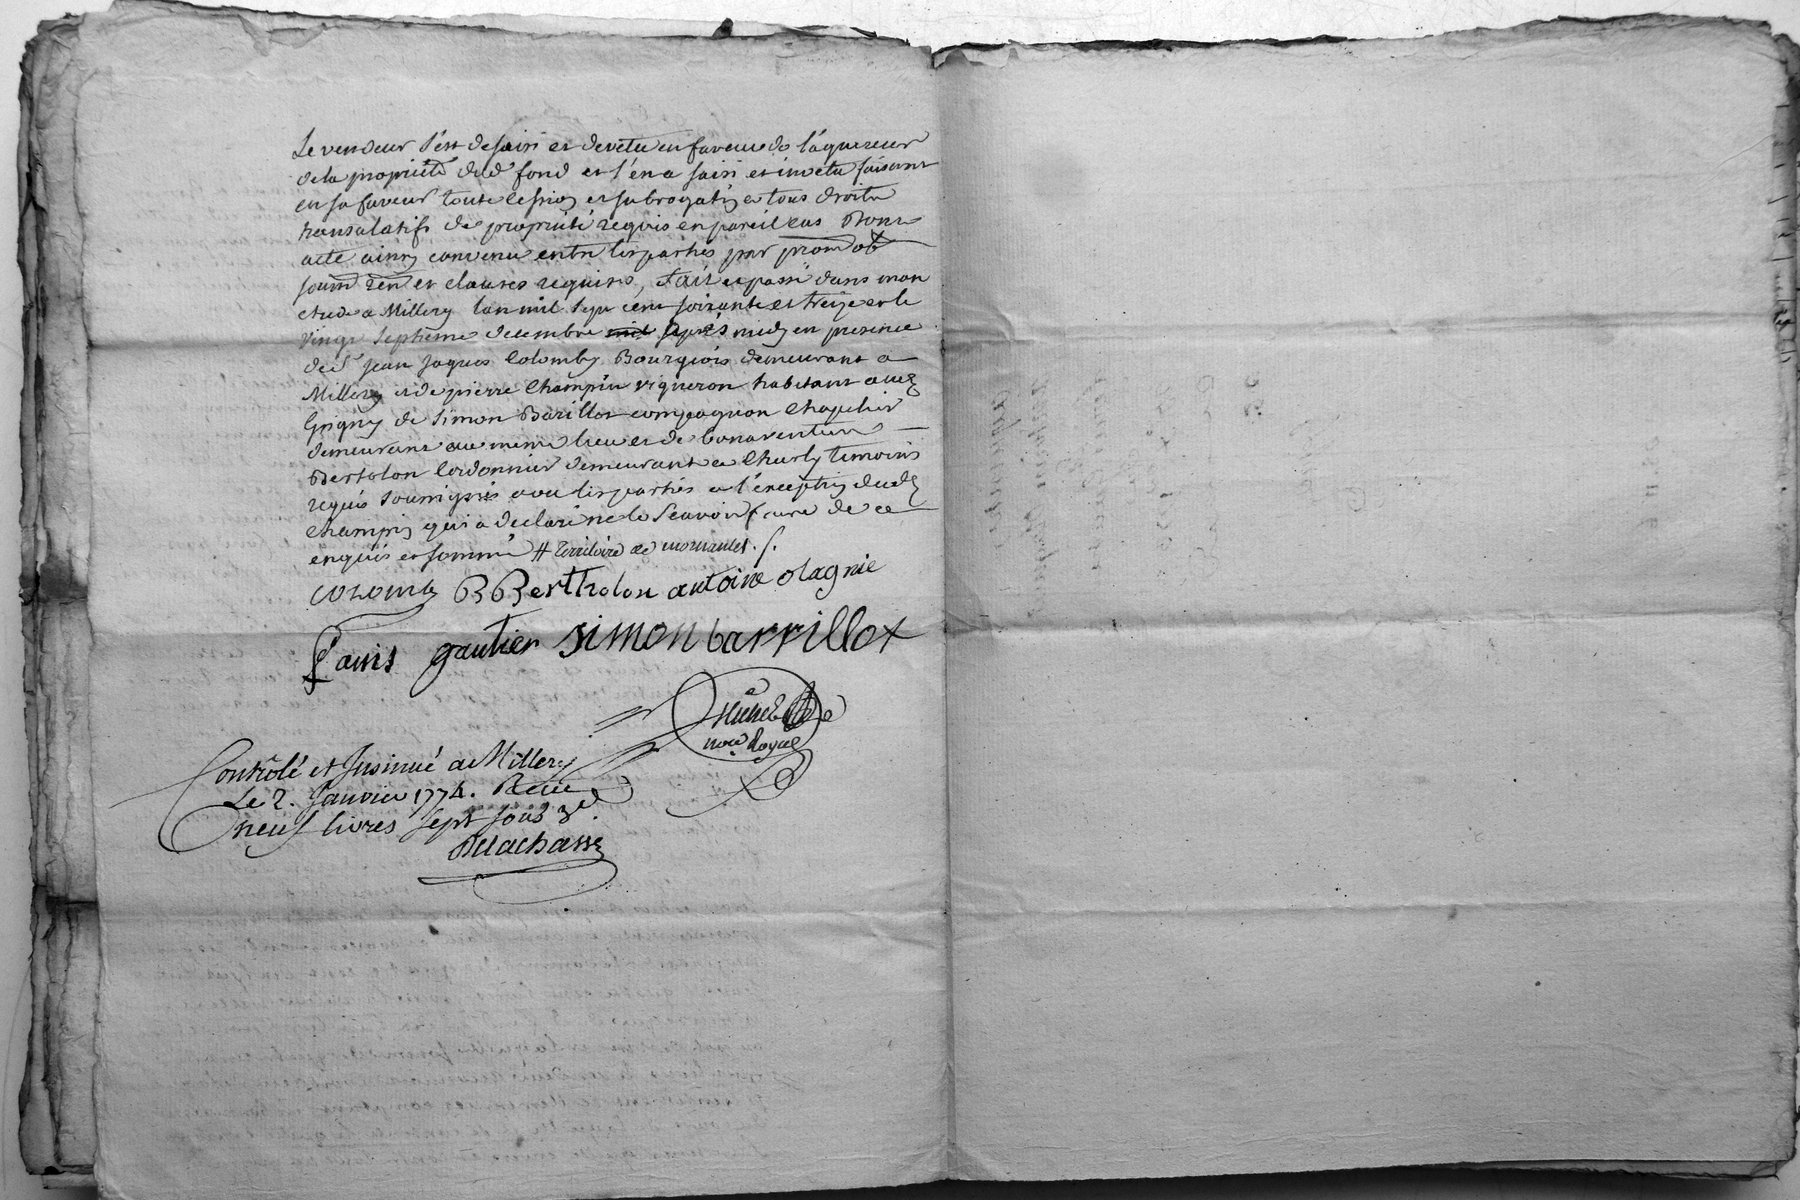 Le vendeur s'est desaisi et devetu en faveur de l'aquereur
de la propriété dud fond et l'en a saisi et invetu faisant
en sa faveur toute cession et subrogation et tous droits
translatifs de propriété requis en pareil cas Dont
acte ainsy convenu entre les parties par prom ob
soum ren et clauses requises, Fait et passé dans mon
etude a Millery l'an mil sept cent soixante et treize et le
vingt septieme decembre apres midy en presence
de Sr Jean Jaques Colomby Bourgeois demeurant a
Millery et de pierre Champin vigneron habitant
Grigny de Simon Barillot compagnon Chapelier
demeurant au meme lieu et de bonaventure
Bertolon Cordonnier demeurant a Charly temoins
requis soussignés avec les parties a l'exception dud
Champin qui a declaré ne le scavoir faire de ce
enquis et sommé # territoire de mornantet
Colomby B Bertholon antoine olagnie
gautier simon barrillot
nore Royal
Contrôlé et Insinué a Millery
Le 2. Janvier 1774. Reçu
neuf livres sept sous 3d.
Delachasse